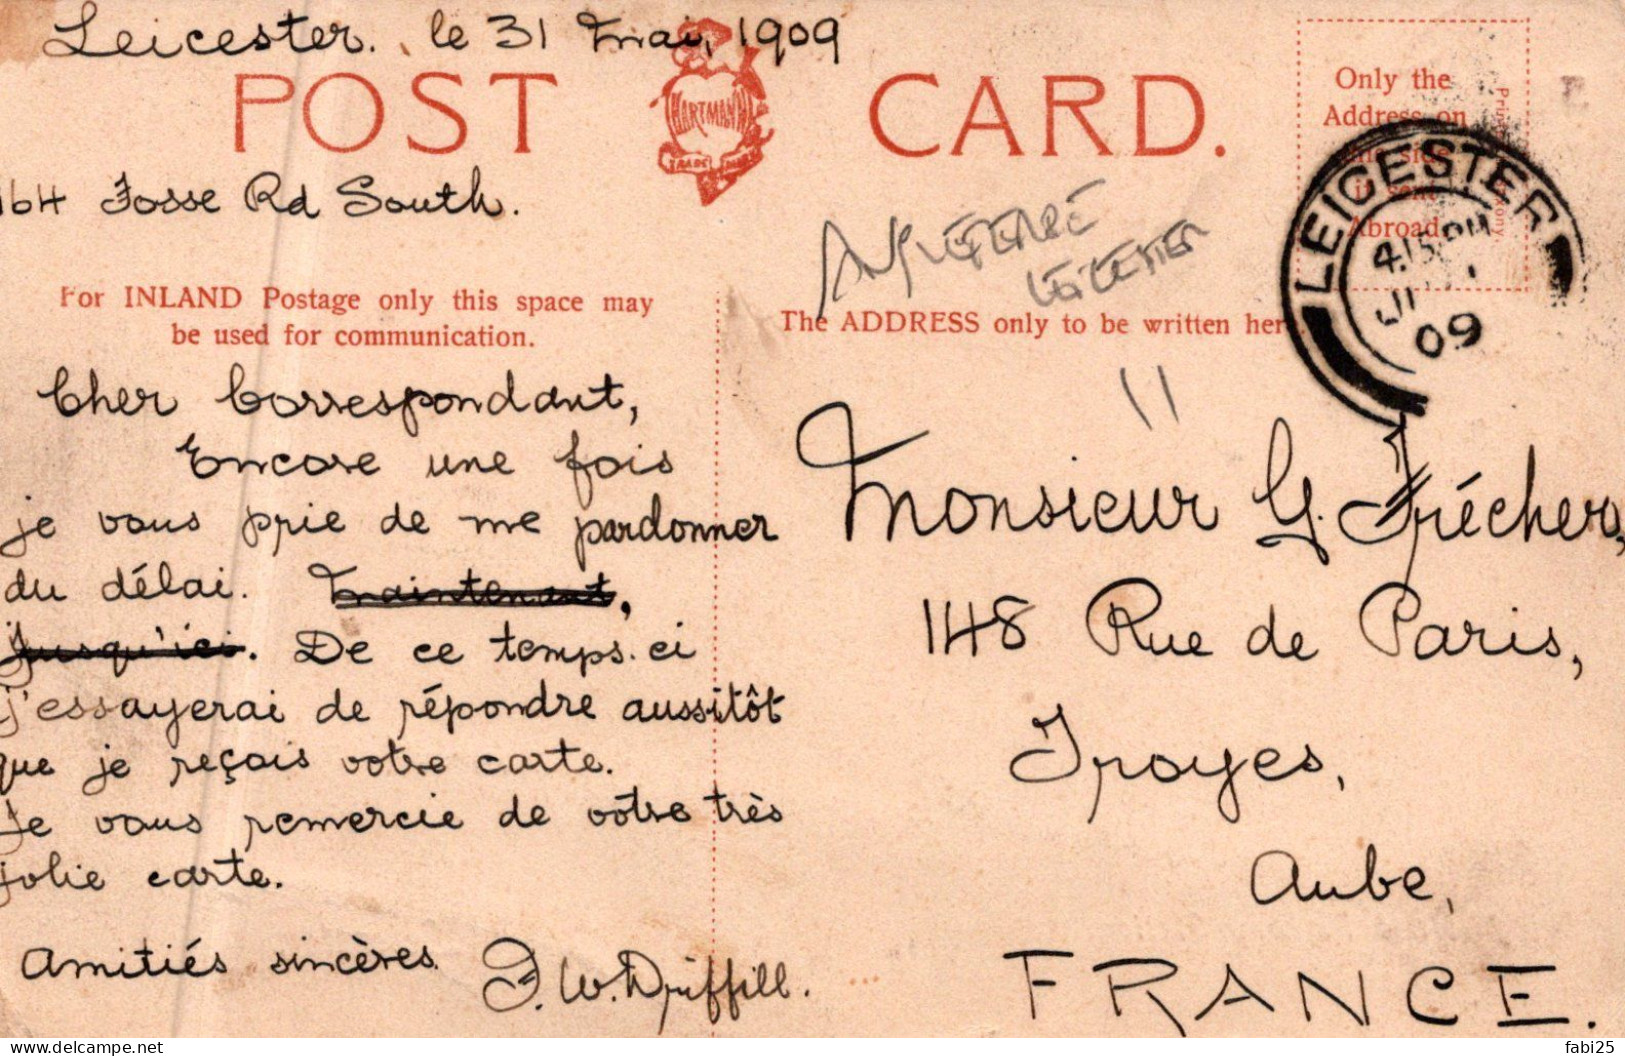 Leicester. le 31 mai, 1909
POST CARD.
HARTMANN
TRADE MARK
Only the
Address on
this side
if sent
Abroad.
164 Fosse Rd South.
ANGLETERRE
LEICESTER
LEICESTER
4.15 PM
09
For INLAND Postage only this space may
be used for communication.
The ADDRESS only to be written here
Cher Correspondant,
Encore une fois
je vous prie de me pardonner
du délai. Maintenant,
Jusqu'ici. De ce temps-ci
j'essayerai de répondre aussitôt
que je reçois votre carte.
Je vous remercie de vôtre très
jolie carte.
Amitiés sincères
F. W. Driffill.
11
Monsieur G. Frécher,
148 Rue de Paris,
Troyes,
Aube,
FRANCE.
fabi25